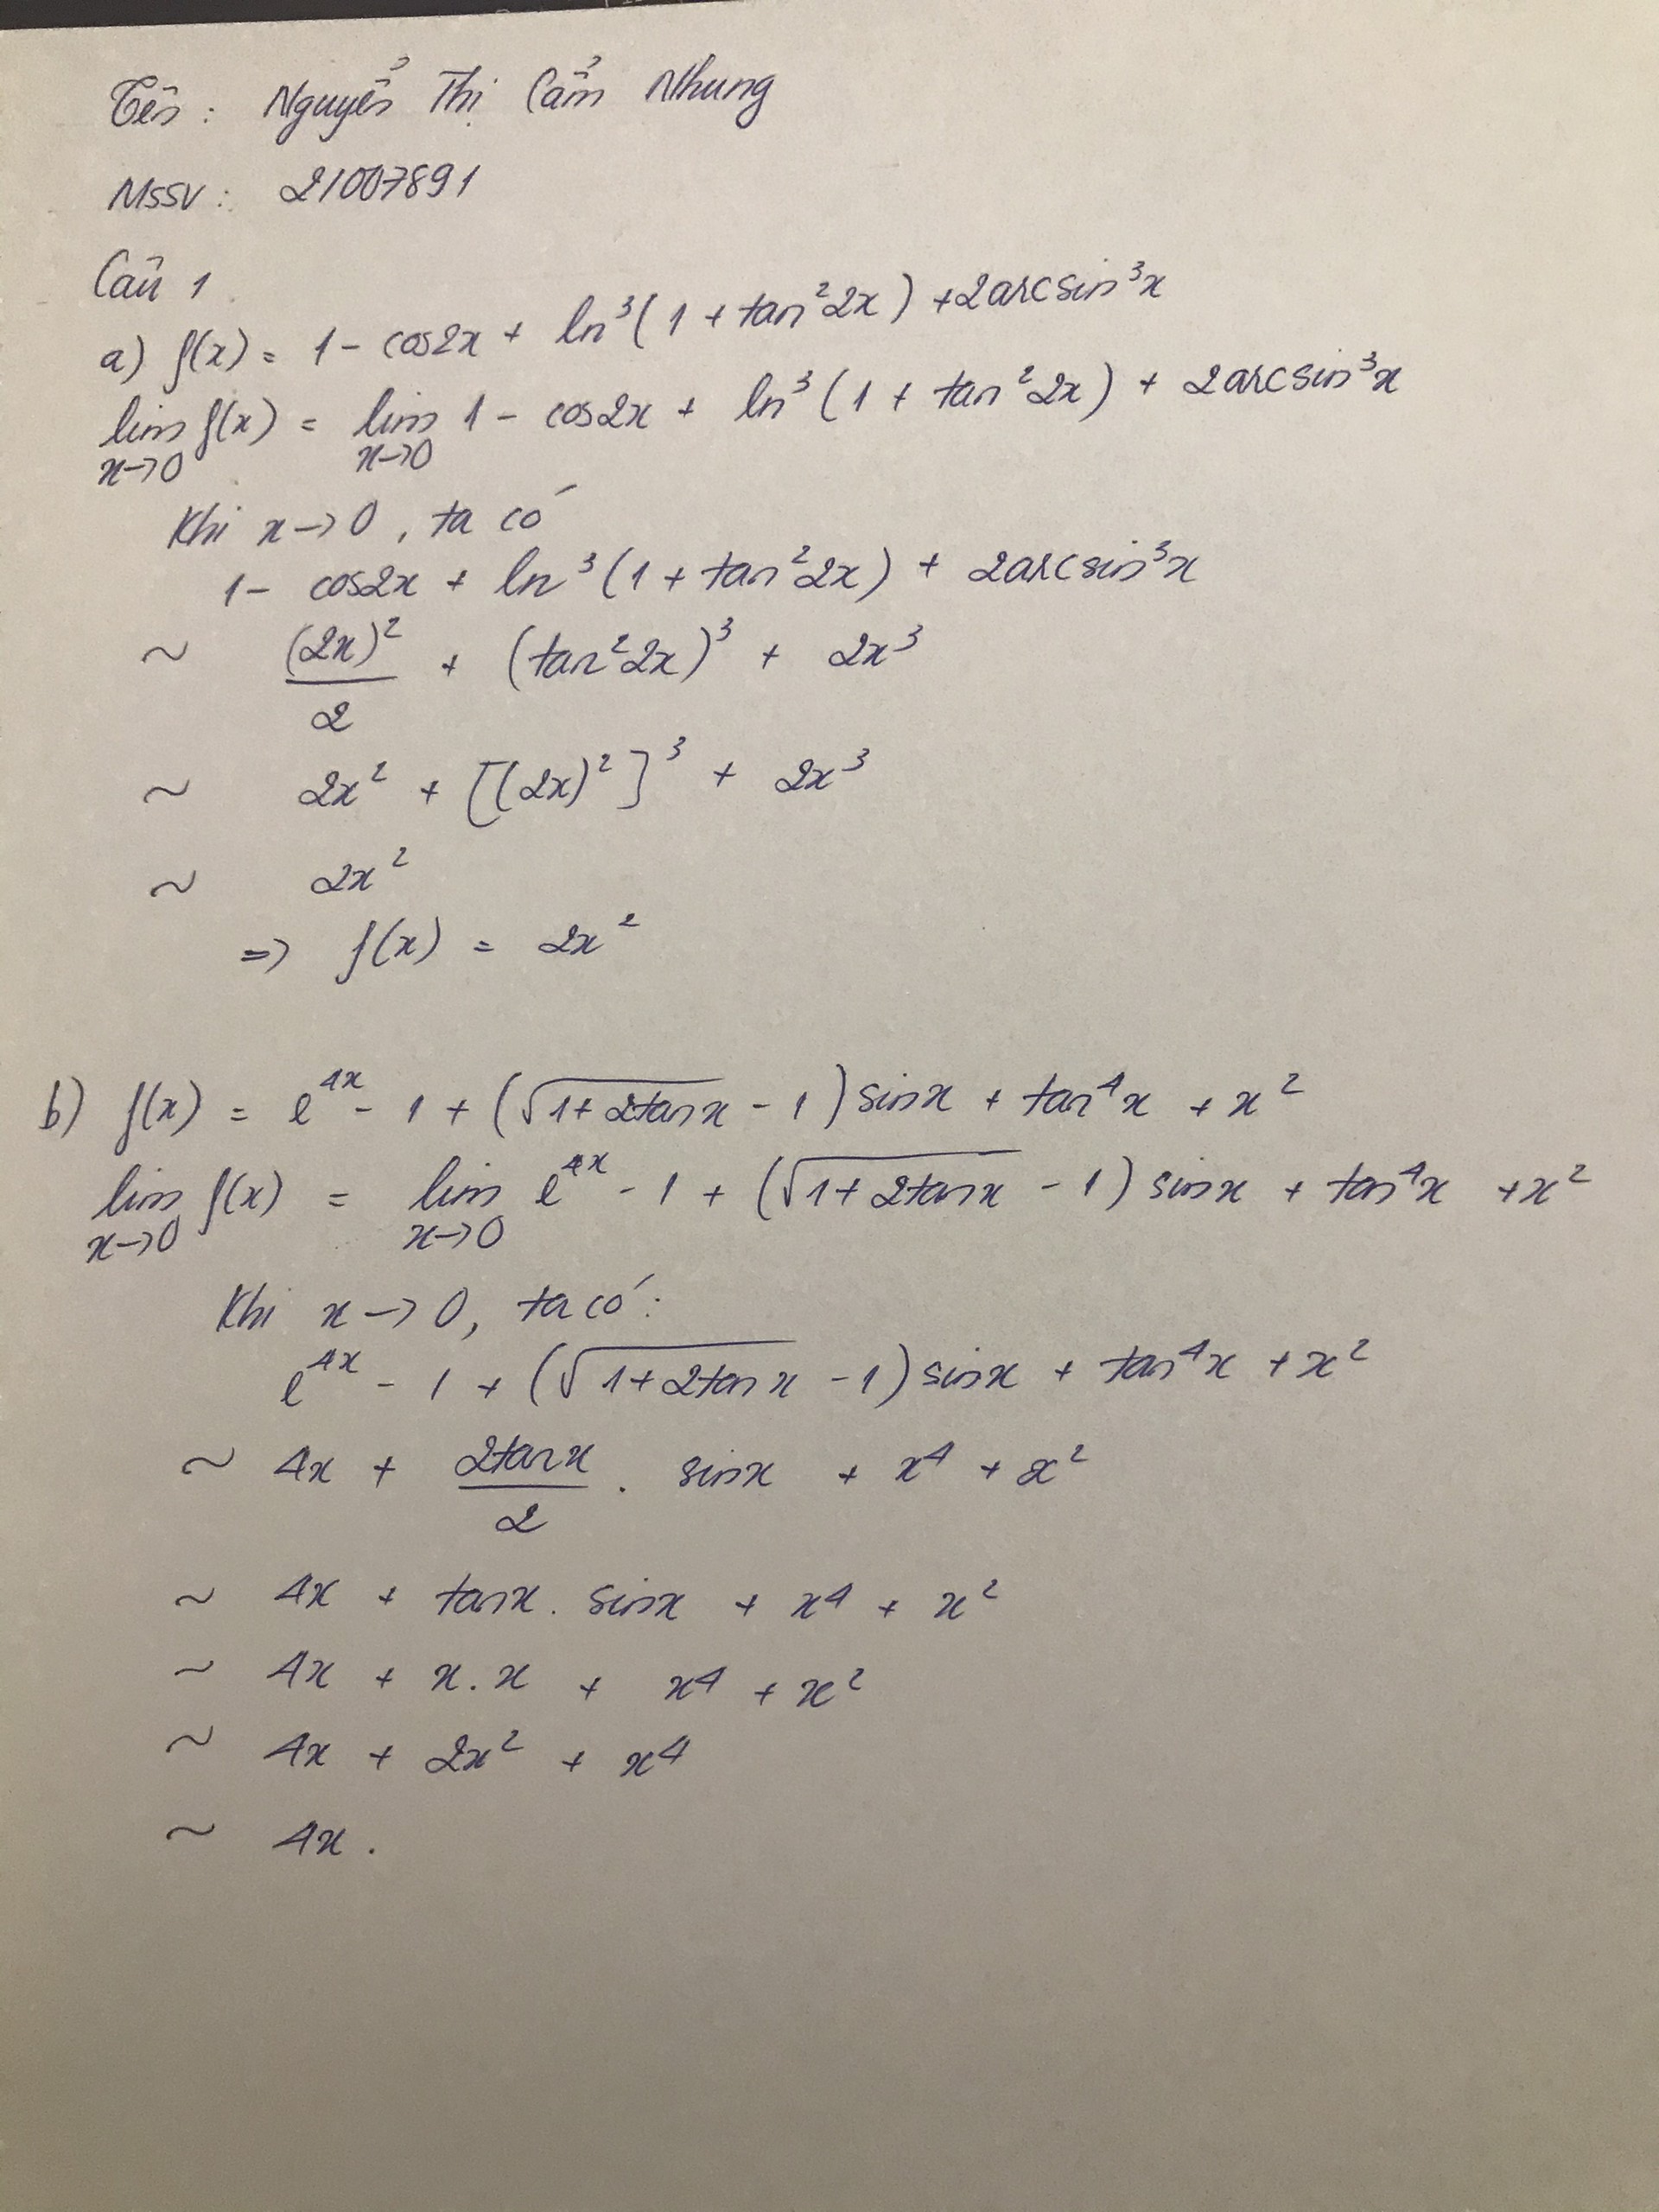 Tên : Nguyễn Thị Cẩm Nhung
MSSV : 21007891
Câu 1
a) f(x) = 1 - cos2x + ln³(1 + tan²2x) + 2arcsin³x
lim x→0 f(x) = lim x→0 1 - cos2x + ln³(1 + tan²2x) + 2arcsin³x
Khi x→0, ta có
1 - cos2x + ln³(1 + tan²2x) + 2arcsin³x
~ (2x)²/2 + (tan²2x)³ + 2x³
~ 2x² + [(2x)²]³ + 2x³
~ 2x²
=> f(x) = 2x²
b) f(x) = e^4x - 1 + (√1+2tanx - 1)sinx + tan⁴x + x²
lim x→0 f(x) = lim x→0 e^4x - 1 + (√1+2tanx - 1)sinx + tan⁴x + x²
Khi x→0, ta có:
e^4x - 1 + (√1+2tanx - 1)sinx + tan⁴x + x²
~ 4x + 2tanx/2 . sinx + x⁴ + x²
~ 4x + tanx . sinx + x⁴ + x²
~ 4x + x.x + x⁴ + x²
~ 4x + 2x² + x⁴
~ 4x .